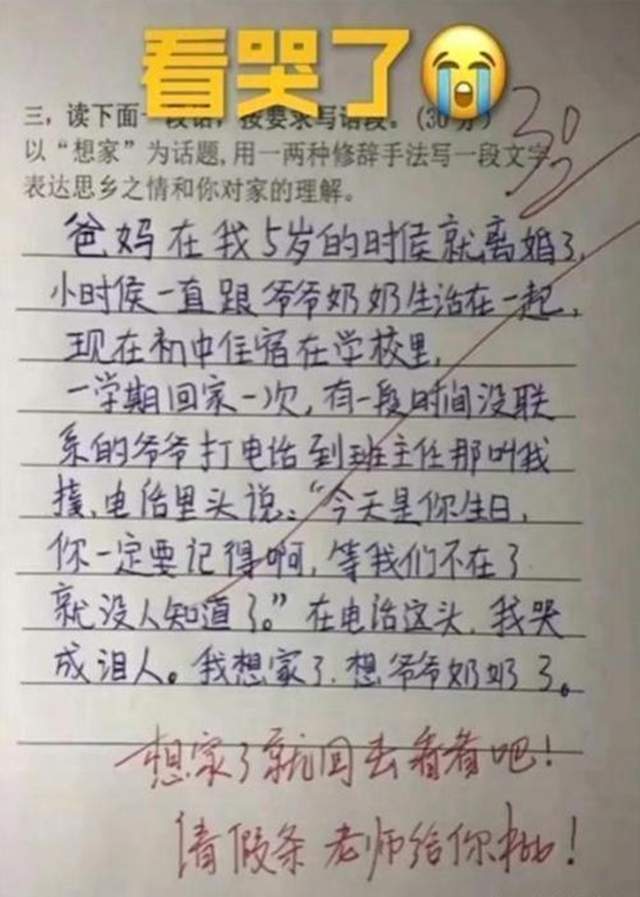 看哭了
三，读下面一段话，按要求写语段。(30分)
30
以“想家”为话题，用一两种修辞手法写一段文字
表达思乡之情和你对家的理解。
爸妈在我5岁的时候就离婚了，
小时侯一直跟爷爷奶奶生活在一起，
现在初中住宿在学校里，
一学期回家一次，有一段时间没联
系的爷爷打电话到班主任那叫我
接，电话里头说：“今天是你生日，
你一定要记得啊，等我们不在了
就没人知道了。”在电话这头，我哭
成泪人。我想家了，想爷爷奶奶了。
想家了就回去看看吧！
请假条老师给你批！